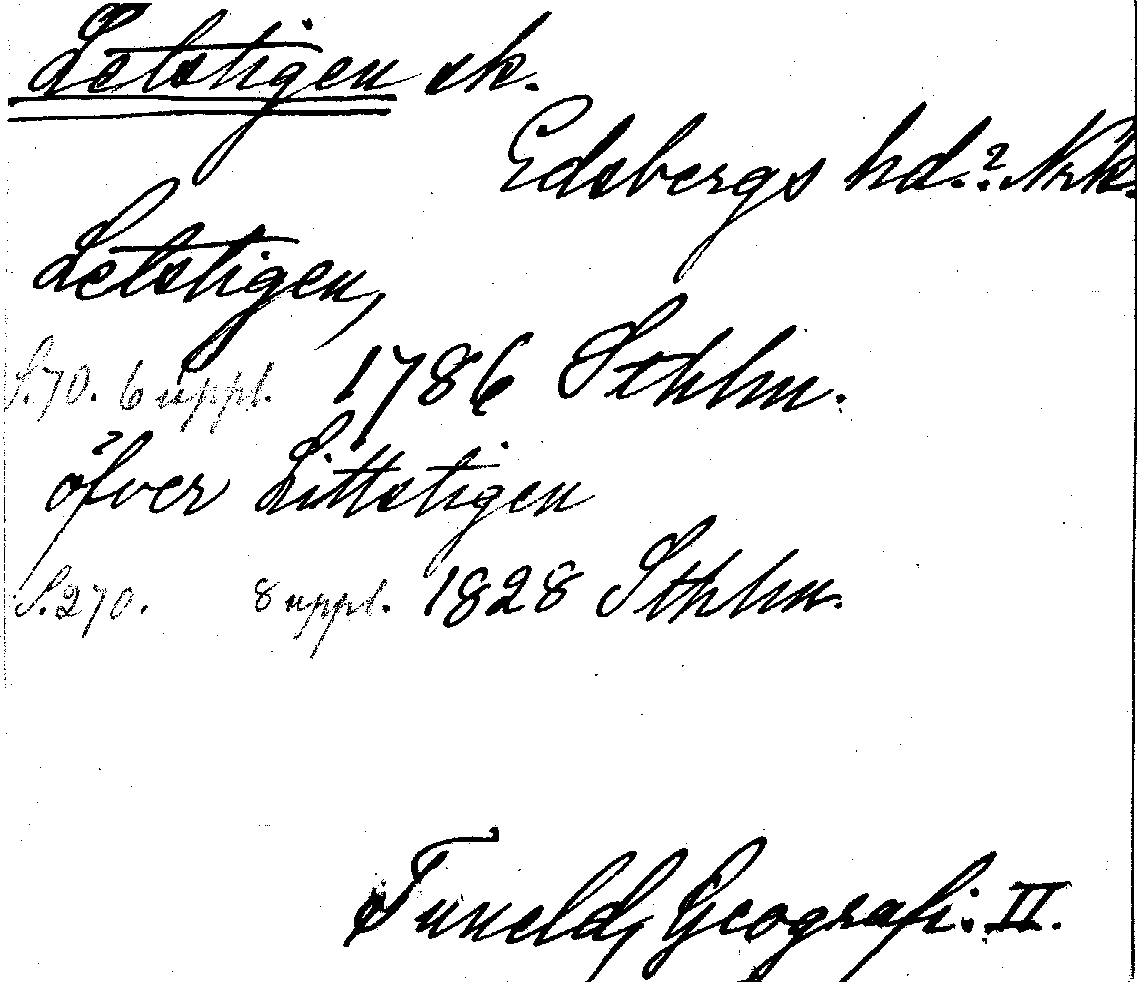 Letstigen sk.
Edsbergs hd.? Nrk.
Letstigen,
S. 70. 6 uppl. 1786 Sthlm.
öfver Littstigen
S. 270. 8 uppl. 1828 Sthlm.
Tuneld, Geografi. II.